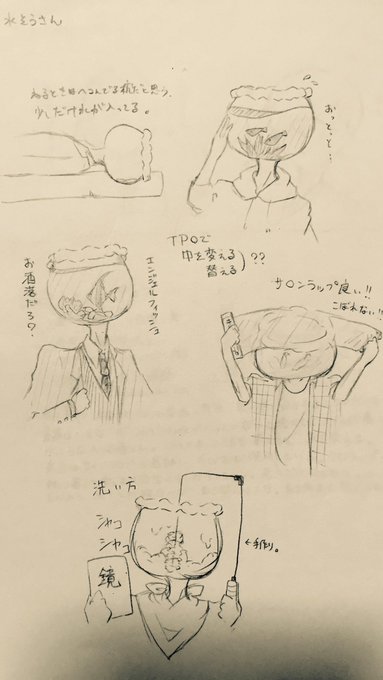 水そうさん
ねるときはへこんでる枕だと思う。
少しだけ水が入ってる。
おっとっと…
TPOで
中を変える
替える
??
エンジェルフィッシュ
お洒落だろ?
サロンラップ良い!!
こぼれない!!
洗い方
シャコ
シャコ
鏡
←手作り。